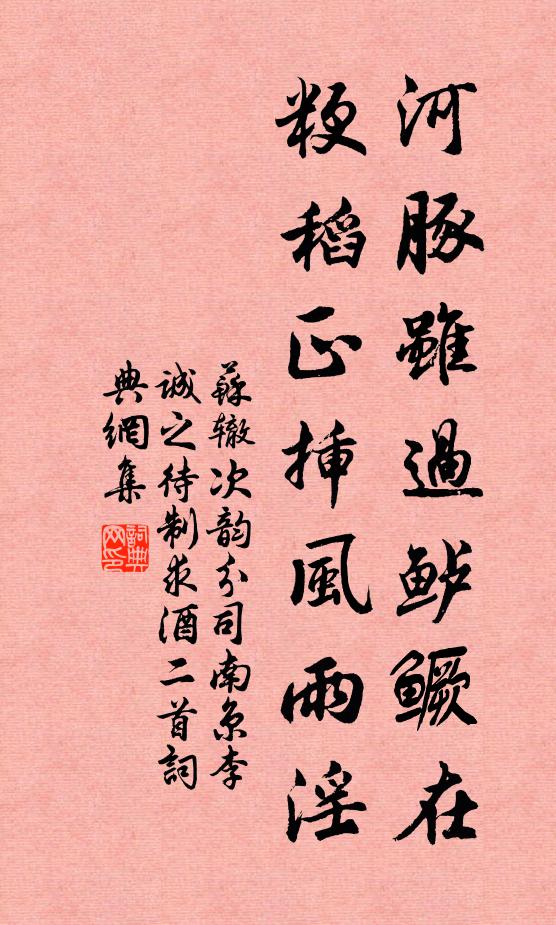 河豚雖過鲈鳜在
粳稻正挿風雨淫
蘇辙次韵分司南京李
誠之待制求酒二首詞
典網集
詞典网印